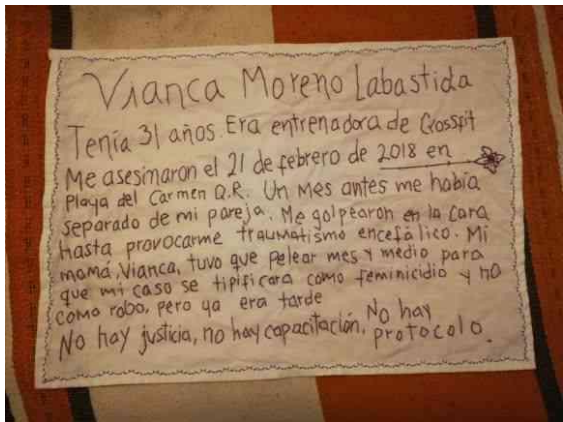 Vianca Moreno Labastida
Tenía 31 años. Era entrenadora de Crossfit
Me asesinaron el 21 de febrero de 2018 en
Playa del Carmen Q.R. Un mes antes me había
separado de mi pareja. Me golpearon en la cara
hasta provocarme traumatismo encefálico. Mi
mamá, Vianca, tuvo que pelear mes y medio para
que mi caso se tipificara como feminicidio y no
como robo, pero ya era tarde
No hay justicia, no hay capacitación, No hay
protocolo.